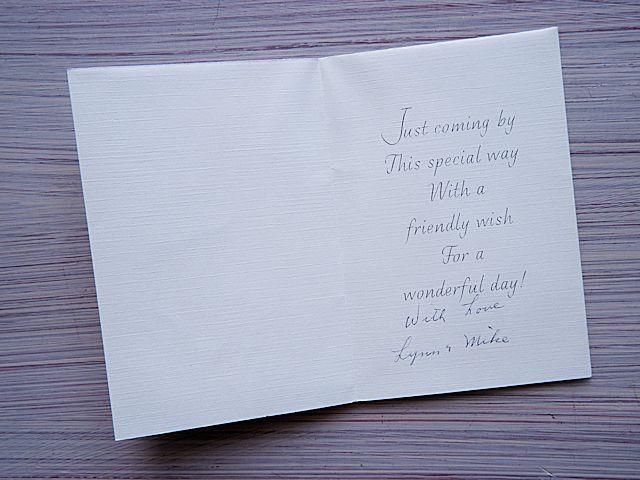 Just coming by
This special way
With a
friendly wish
For a
wonderful day!
With Love
Lynn & Mike